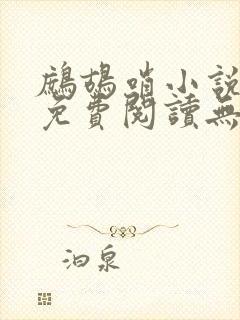 鷓鴣哨小說
免費閱讀無
泊泉